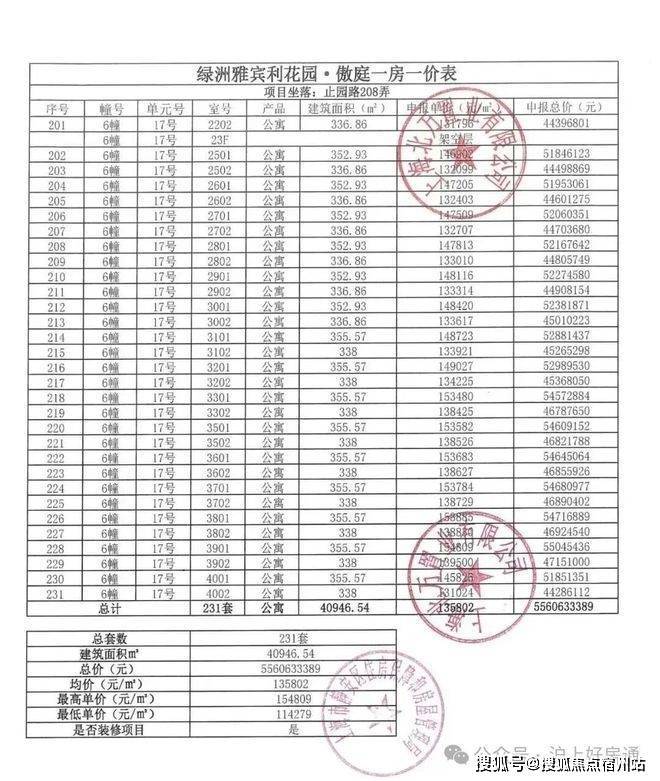 绿洲雅宾利花园·傲庭一房一价表
项目坐落：止园路208弄
序号 幢号 单元号 室号 产品 建筑面积（㎡） 申报单价（元/㎡） 申报总价（元）
201 6幢 17号 2202 公寓 336.86 131796 44396801
6幢 17号 23F 架空层
202 6幢 17号 2501 公寓 352.93 146902 51846123
203 6幢 17号 2502 公寓 336.86 132099 44498869
204 6幢 17号 2601 公寓 352.93 147205 51953061
205 6幢 17号 2602 公寓 336.86 132403 44601275
206 6幢 17号 2701 公寓 352.93 147509 52060351
207 6幢 17号 2702 公寓 336.86 132707 44703680
208 6幢 17号 2801 公寓 352.93 147813 52167642
209 6幢 17号 2802 公寓 336.86 133010 44805749
210 6幢 17号 2901 公寓 352.93 148116 52274580
211 6幢 17号 2902 公寓 336.86 133314 44908154
212 6幢 17号 3001 公寓 352.93 148420 52381871
213 6幢 17号 3002 公寓 336.86 133617 45010223
214 6幢 17号 3101 公寓 355.57 148723 52881437
215 6幢 17号 3102 公寓 338 133921 45265298
216 6幢 17号 3201 公寓 355.57 149027 52989530
217 6幢 17号 3202 公寓 338 134225 45368050
218 6幢 17号 3301 公寓 355.57 153480 54572884
219 6幢 17号 3302 公寓 338 138425 46787650
220 6幢 17号 3501 公寓 355.57 153582 54609152
221 6幢 17号 3502 公寓 338 138526 46821788
222 6幢 17号 3601 公寓 355.57 153683 54645064
223 6幢 17号 3602 公寓 338 138627 46855926
224 6幢 17号 3701 公寓 355.57 153784 54680977
225 6幢 17号 3702 公寓 338 138729 46890402
226 6幢 17号 3801 公寓 355.57 153885 54716889
227 6幢 17号 3802 公寓 338 138830 46924540
228 6幢 17号 3901 公寓 355.57 154809 55045436
229 6幢 17号 3902 公寓 338 139500 47151000
230 6幢 17号 4001 公寓 355.57 145825 51851351
231 6幢 17号 4002 公寓 338 131024 44286112
总计 231套 公寓 40946.54 135802 5560633389
总套数 231套
建筑面积㎡ 40946.54
总价（元） 5560633389
均价（元/㎡） 135802
最高单价（元/㎡） 154809
最低单价（元/㎡） 114279
是否装修项目 是
上海北万置业有限公司
上海北万置业有限公司
公众号·沪上好房通
搜狐号@搜狐焦点宿州站